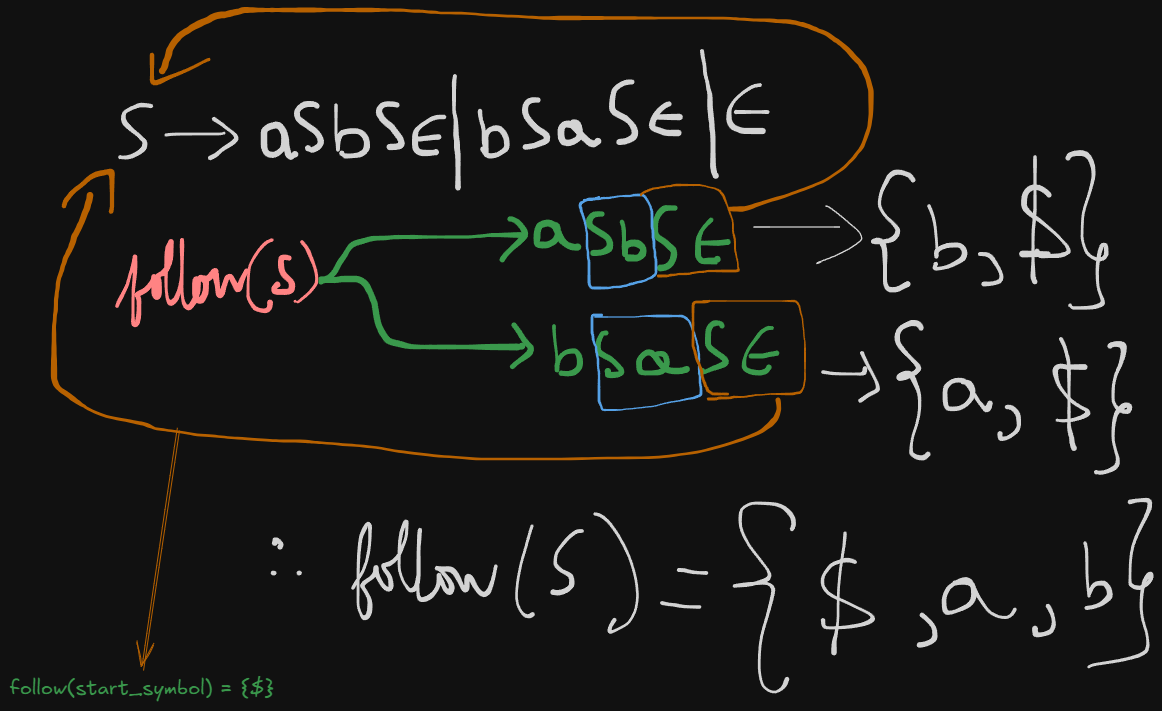 S → aSbSϵ | bSaSϵ | ϵ
follow(S)
→ aSbSϵ → {b, $}
→ bSaSϵ → {a, $}
∴ follow(S) = {$, a, b}
follow(start_symbol) = {$}